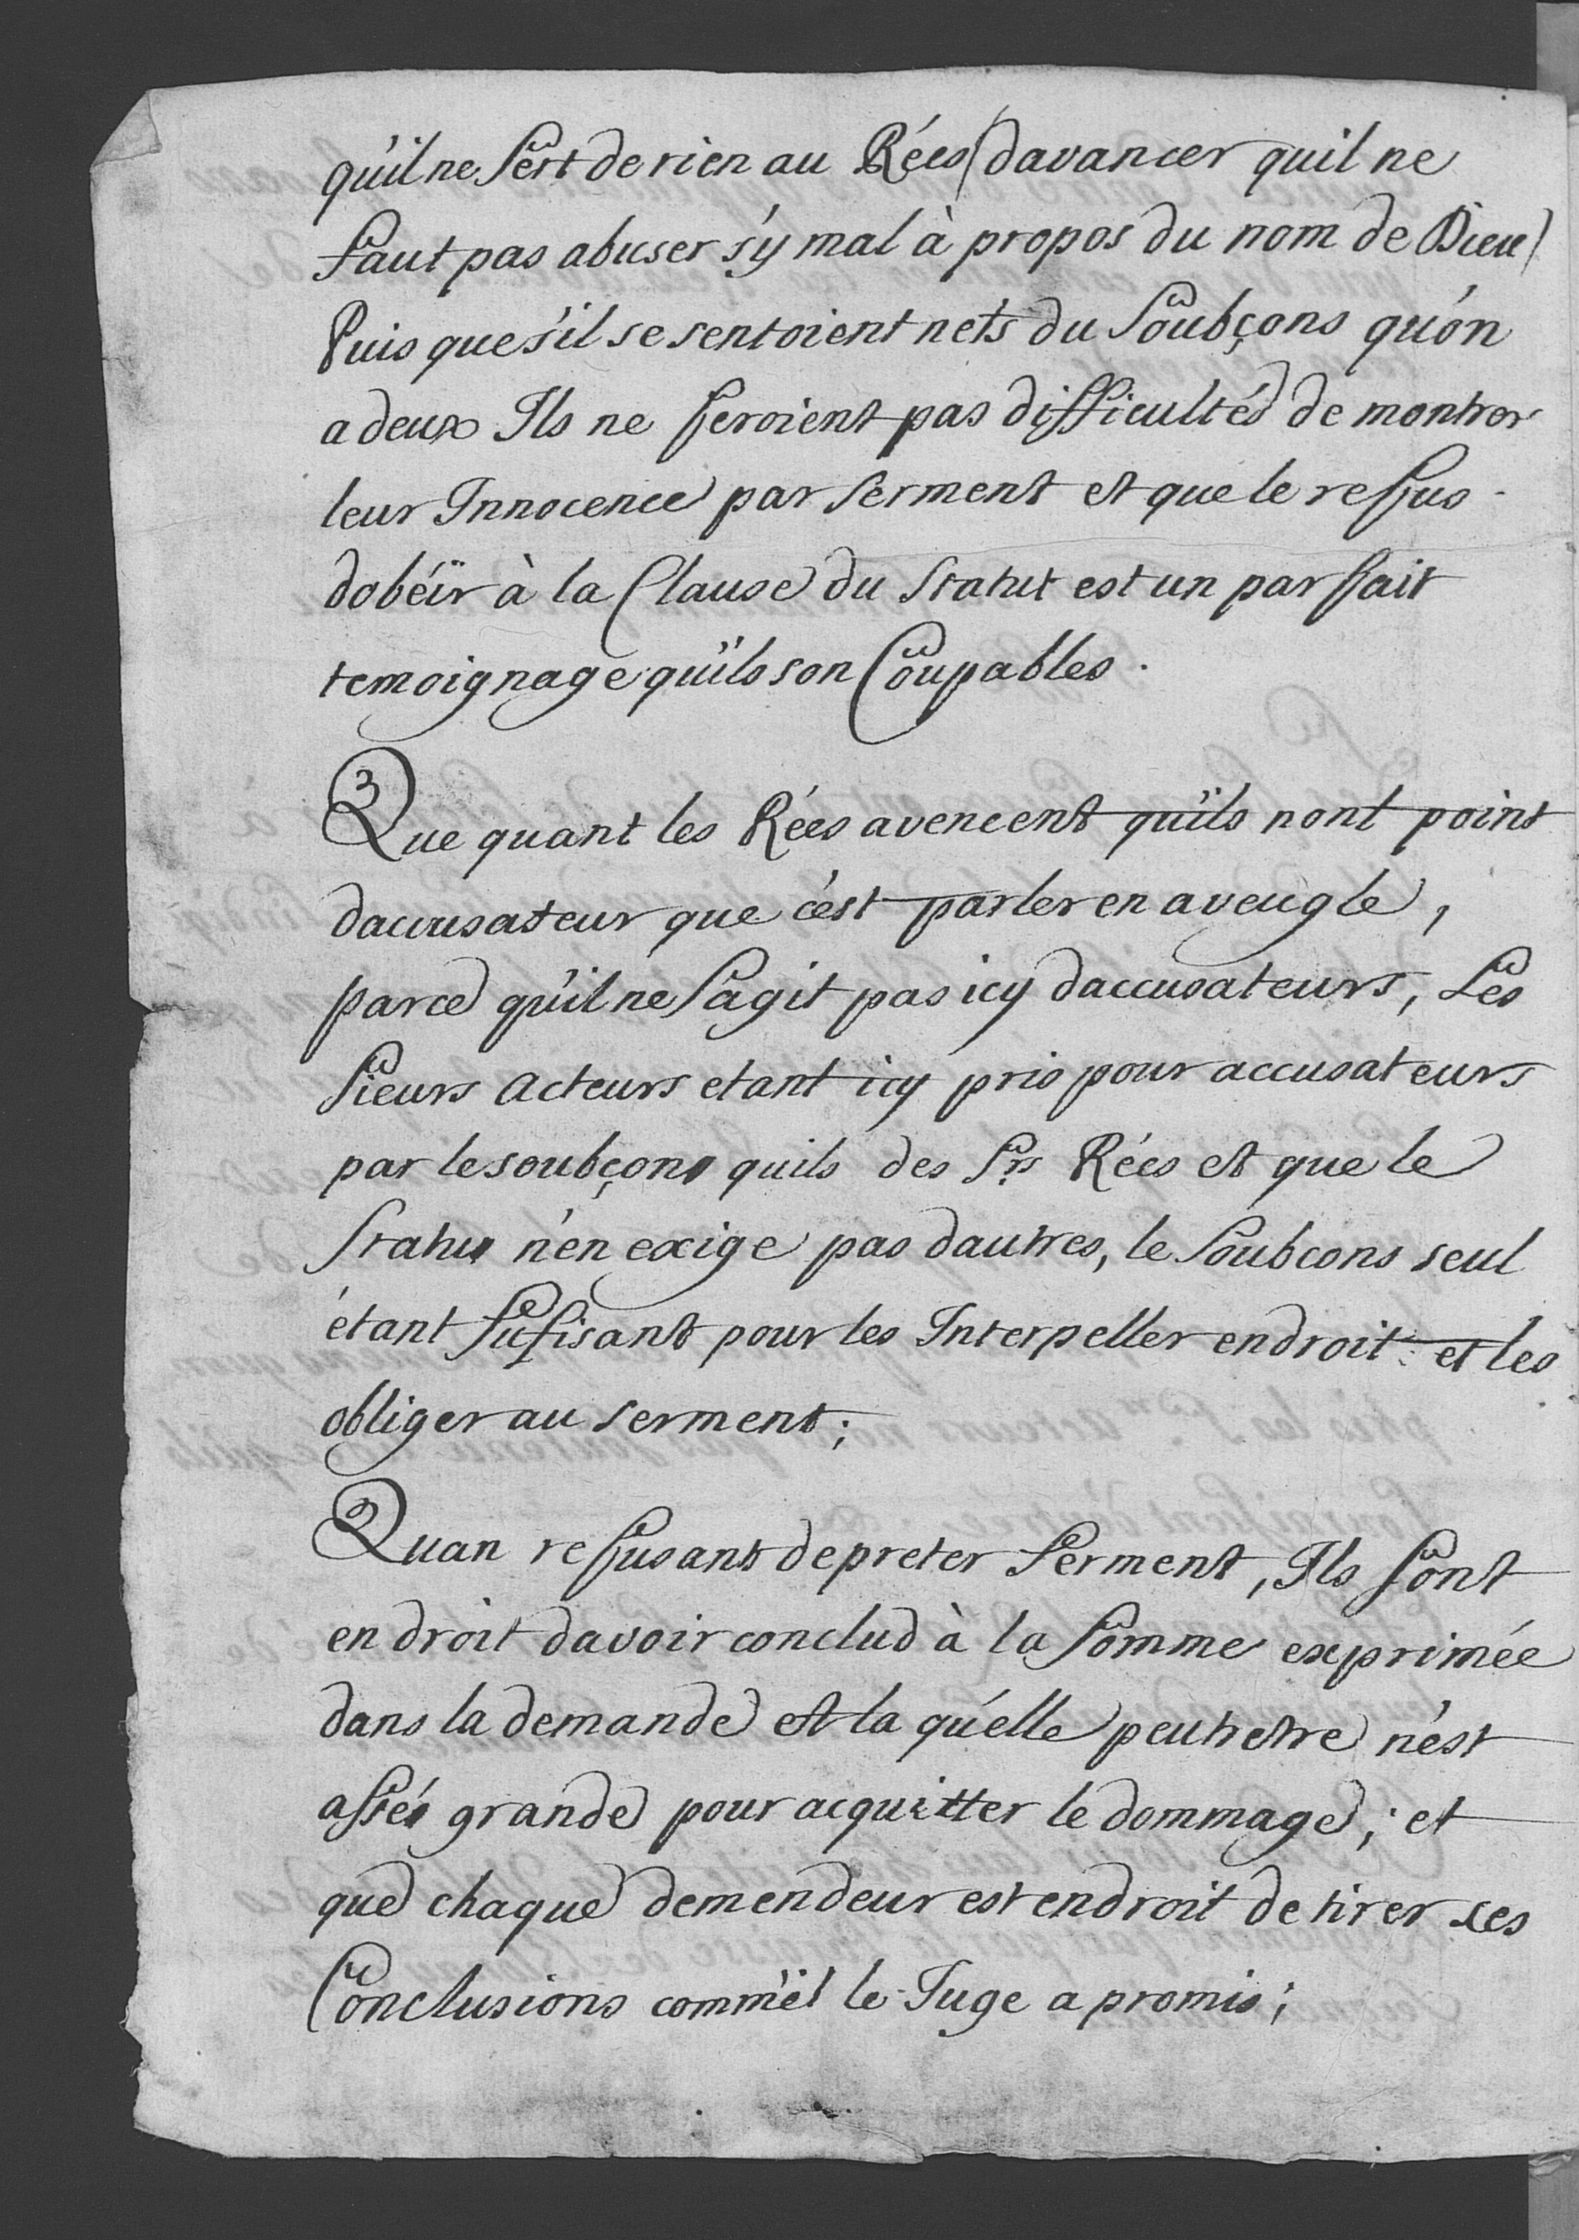 qu'il ne sert de rien au Rées (davancer quil ne
faut pas abuser s'y mal à propos du nom de Dieu)
Puis ques'il se sentoient nets du soubçons qu'on
a deux Ils ne feroient pas difficultés de montrer
leur Innocence par serment et que le reffus
dobéir à la Clause du statut est un parffait
temoignage qu'ils son Coupables.
Que quant les Rées avencent qu'ils nont point
dacusateur que c'est parler en aveugle,
parce qu'il ne sagit pas icy daccusateurs, Les
sieurs Acteurs etant icy pris pour accusateurs
par le soubçons quils des Srs Rées et que le
statut n'en exige pas dautres, le soubcons seul
étant sufisant pour les Interpeller en droit et les
obliger au serment;
Quan reffusant de preter serment, Ils sont
en droit davoir conclud à la somme exprimée
dans la demande et la qu'elle peutretre n'est
assés grande pour acquitter le dommage; et
que chaque demendeur est en droit de tirer ses
Conclusions comm'èl le Juge a promis;